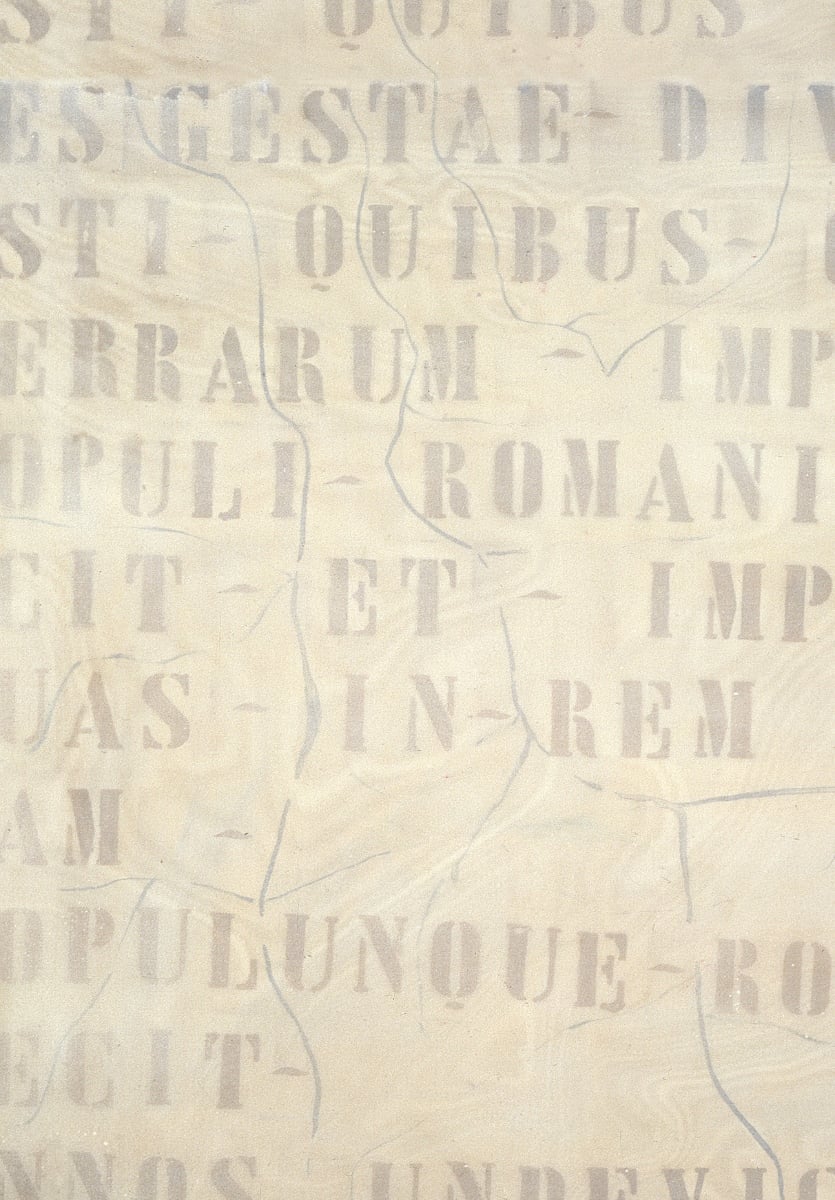 STI - QUIBUS
ES GESTAE - DIV
STI - QUIBUS -
ERRARUM - IMP
OPULI - ROMANI
CIT - ET - IMP
UAS - IN - REM
AM -
OPULUNQUE - RO
ECIT -
NNOS UNDEVIG